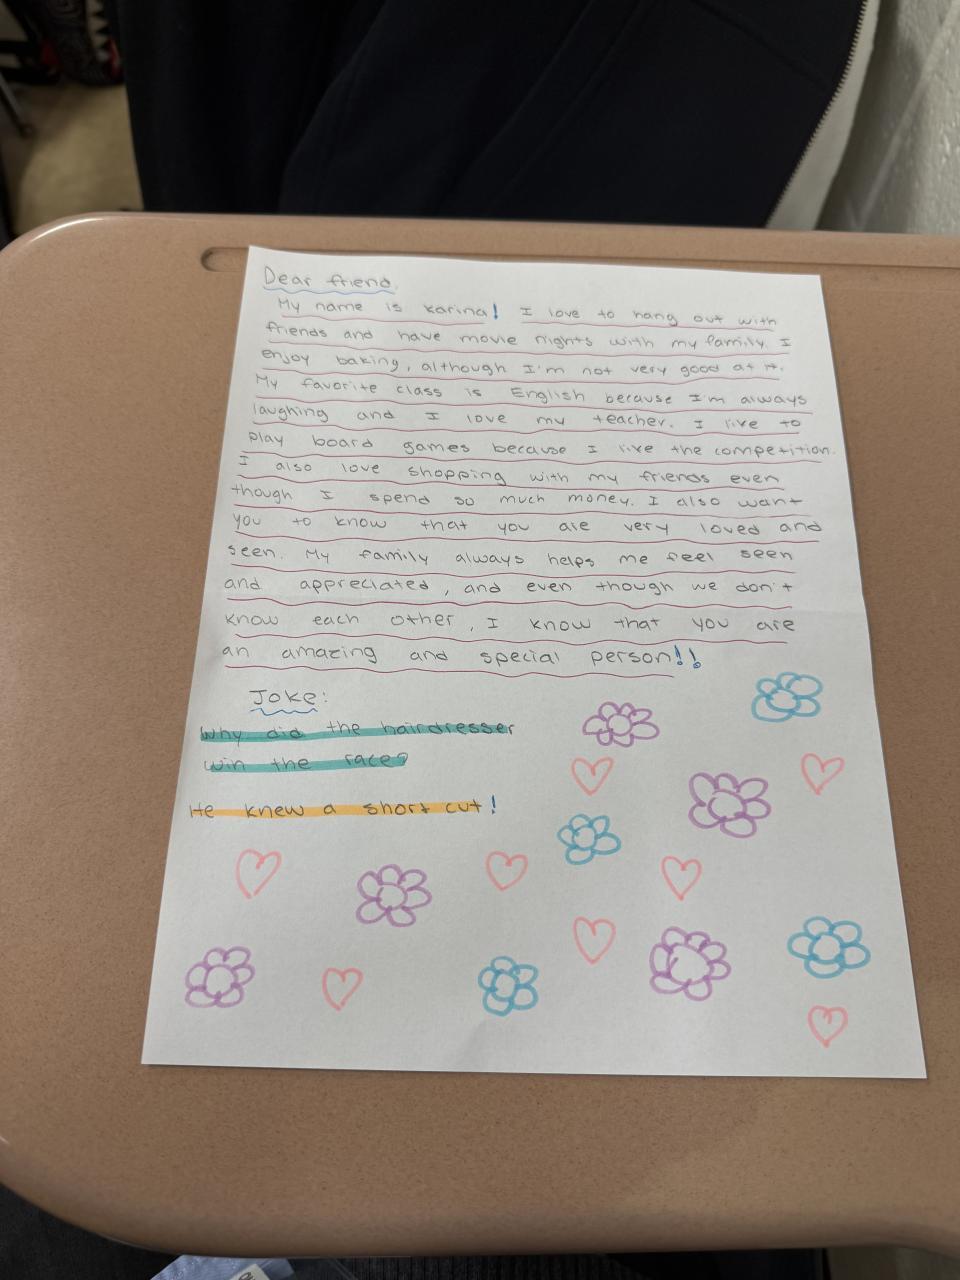 Dear friend,
My name is Karina! I love to hang out with
friends and have movie nights with my family. I
enjoy baking, although I'm not very good at it.
My favorite class is English because I'm always
laughing and I love my teacher. I like to
play board games because I like the competition.
I also love shopping with my friends even
though I spend so much money. I also want
you to know that you are very loved and
seen. My family always helps me feel seen
and appreciated, and even though we don't
know each other, I know that you are
an amazing and special person!!
Joke:
Why did the hairdresser
win the race?
He knew a short cut!